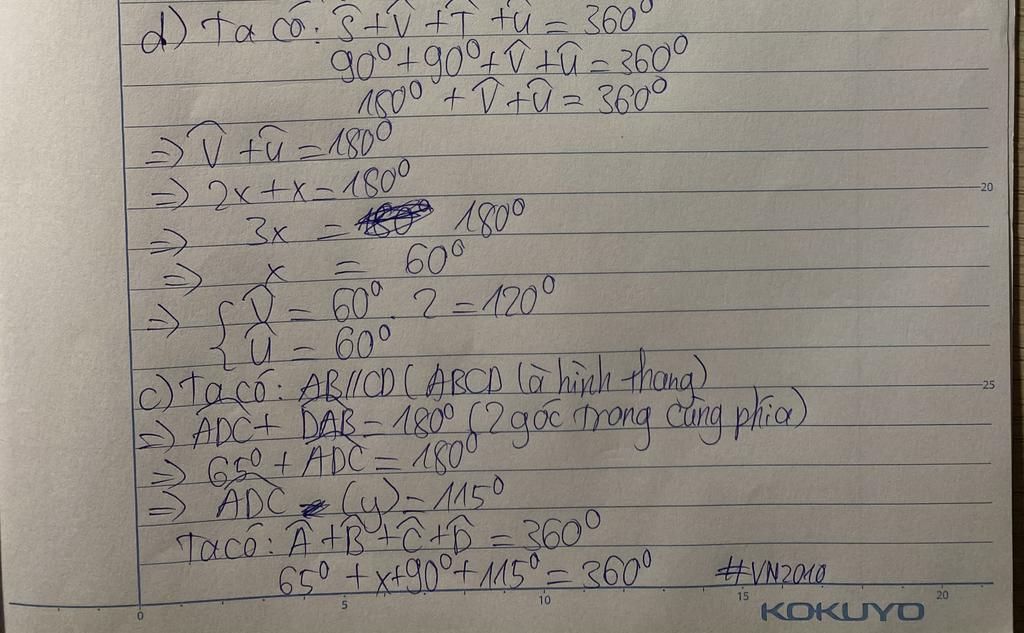 d) Ta có: Ŝ + V̂ + T̂ + û = 360⁰
90⁰ + 90⁰ + V̂ + û = 360⁰
180⁰ + V̂ + û = 360⁰
=> V̂ + û = 180⁰
=> 2x + x = 180⁰
=> 3x = 180⁰
=> x = 60⁰
=> { V̂ = 60⁰ . 2 = 120⁰
{ û = 60⁰
c) Ta có: AB//CD (ABCD là hình thang)
=> ADC + DAB = 180⁰ (2 góc trong cùng phía)
=> 65⁰ + ADC = 180⁰
=> ADC (y) = 115⁰
Ta có: Â + B̂ + Ĉ + D̂ = 360⁰
65⁰ + x + 90⁰ + 115⁰ = 360⁰ #VN2010
20
25
0 5 10 15 20
KOKUYO